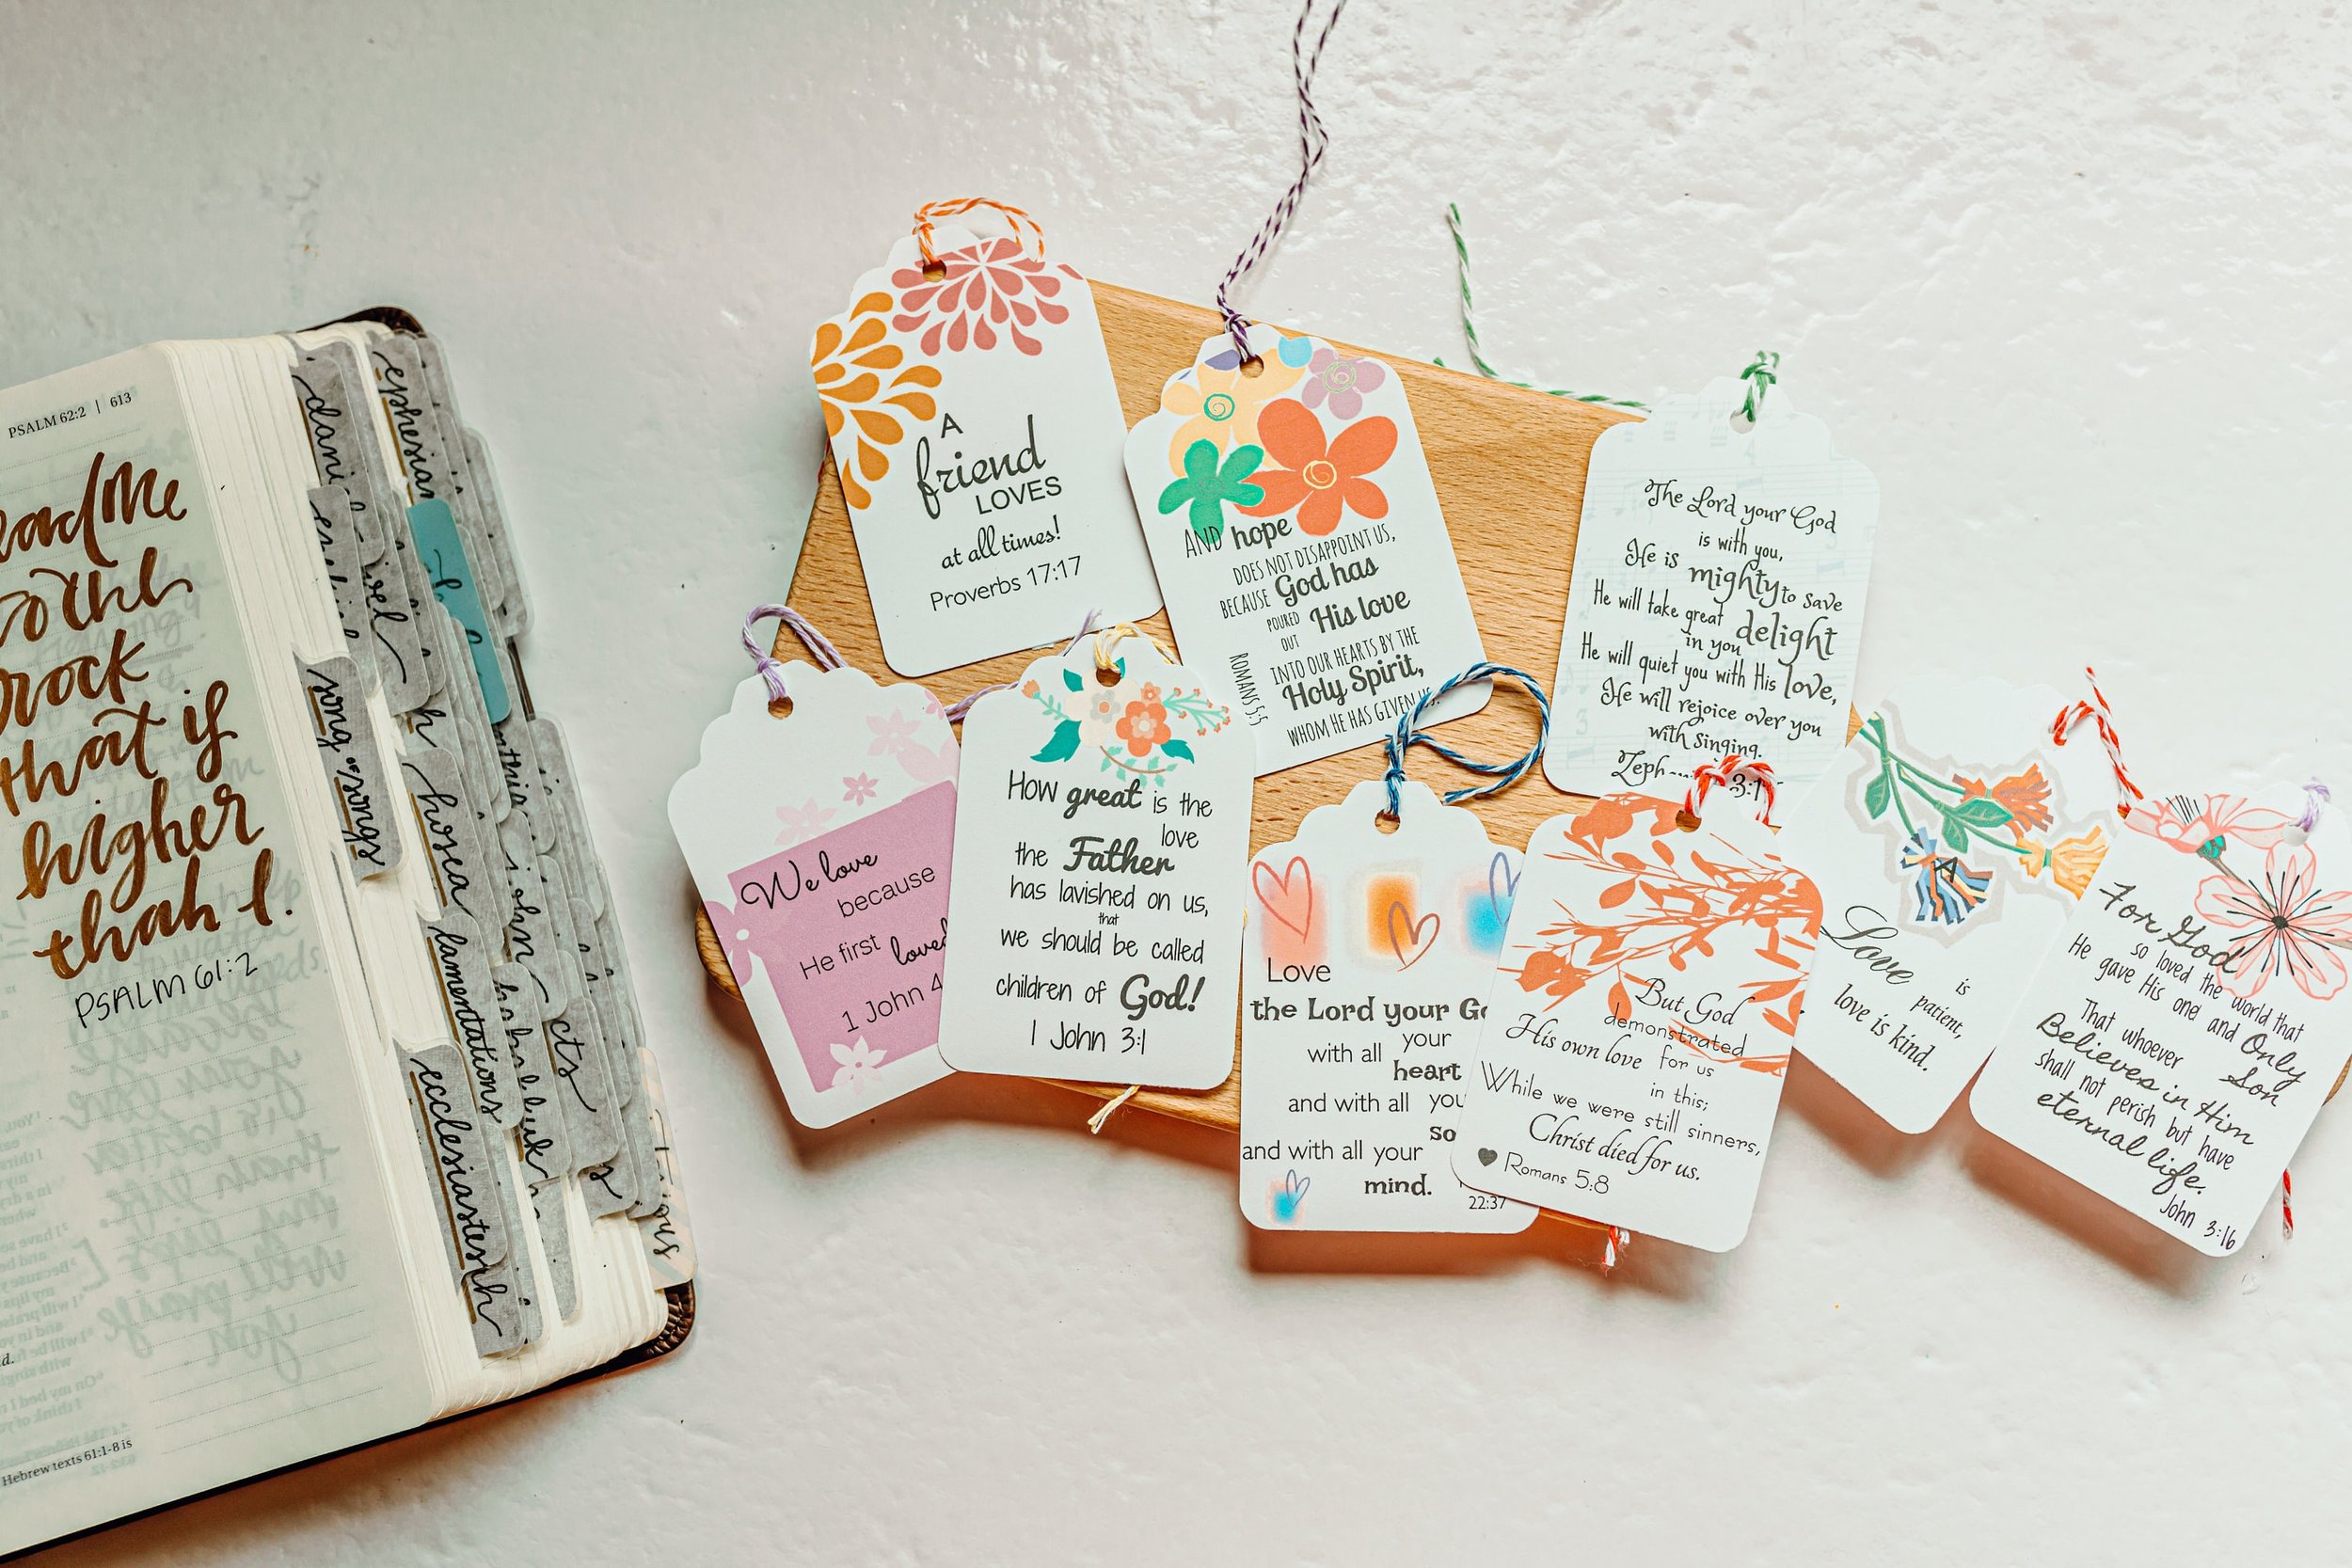 PSALM 62:2 | 613
lead me
to the
rock
that if
higher
than I.
PSALM 61:2
Hebrew texts 61:1-8 is
song of songs
ezekiel
ecclesiastes
lamentations
hosea
habakkuk
acts
A
friend
LOVES
at all times!
Proverbs 17:17
AND hope
DOES NOT DISAPPOINT US,
BECAUSE God has
POURED
OUT His love
INTO OUR HEARTS BY THE
Holy Spirit,
WHOM HE HAS GIVEN US.
ROMANS 5:5
The Lord your God
is with you,
He is mighty to save
He will take great delight
in you
He will quiet you with His love,
He will rejoice over you
with singing.
Zeph 3:1
We love
because
He first loved
1 John 4
How great is the
love
the Father
has lavished on us,
that
we should be called
children of God!
1 John 3:1
Love
the Lord your Go
your
with all heart
and with all you
so
and with all your
mind.
22:37
But God
demonstrated
His own love for us
in this;
While we were still sinners,
Christ died for us.
Romans 5:8
Love is
patient,
love is kind.
For God
so loved the world that
He gave His one and Only
Son
That whoever
Believes in Him
shall not perish but have
eternal life.
John 3:16